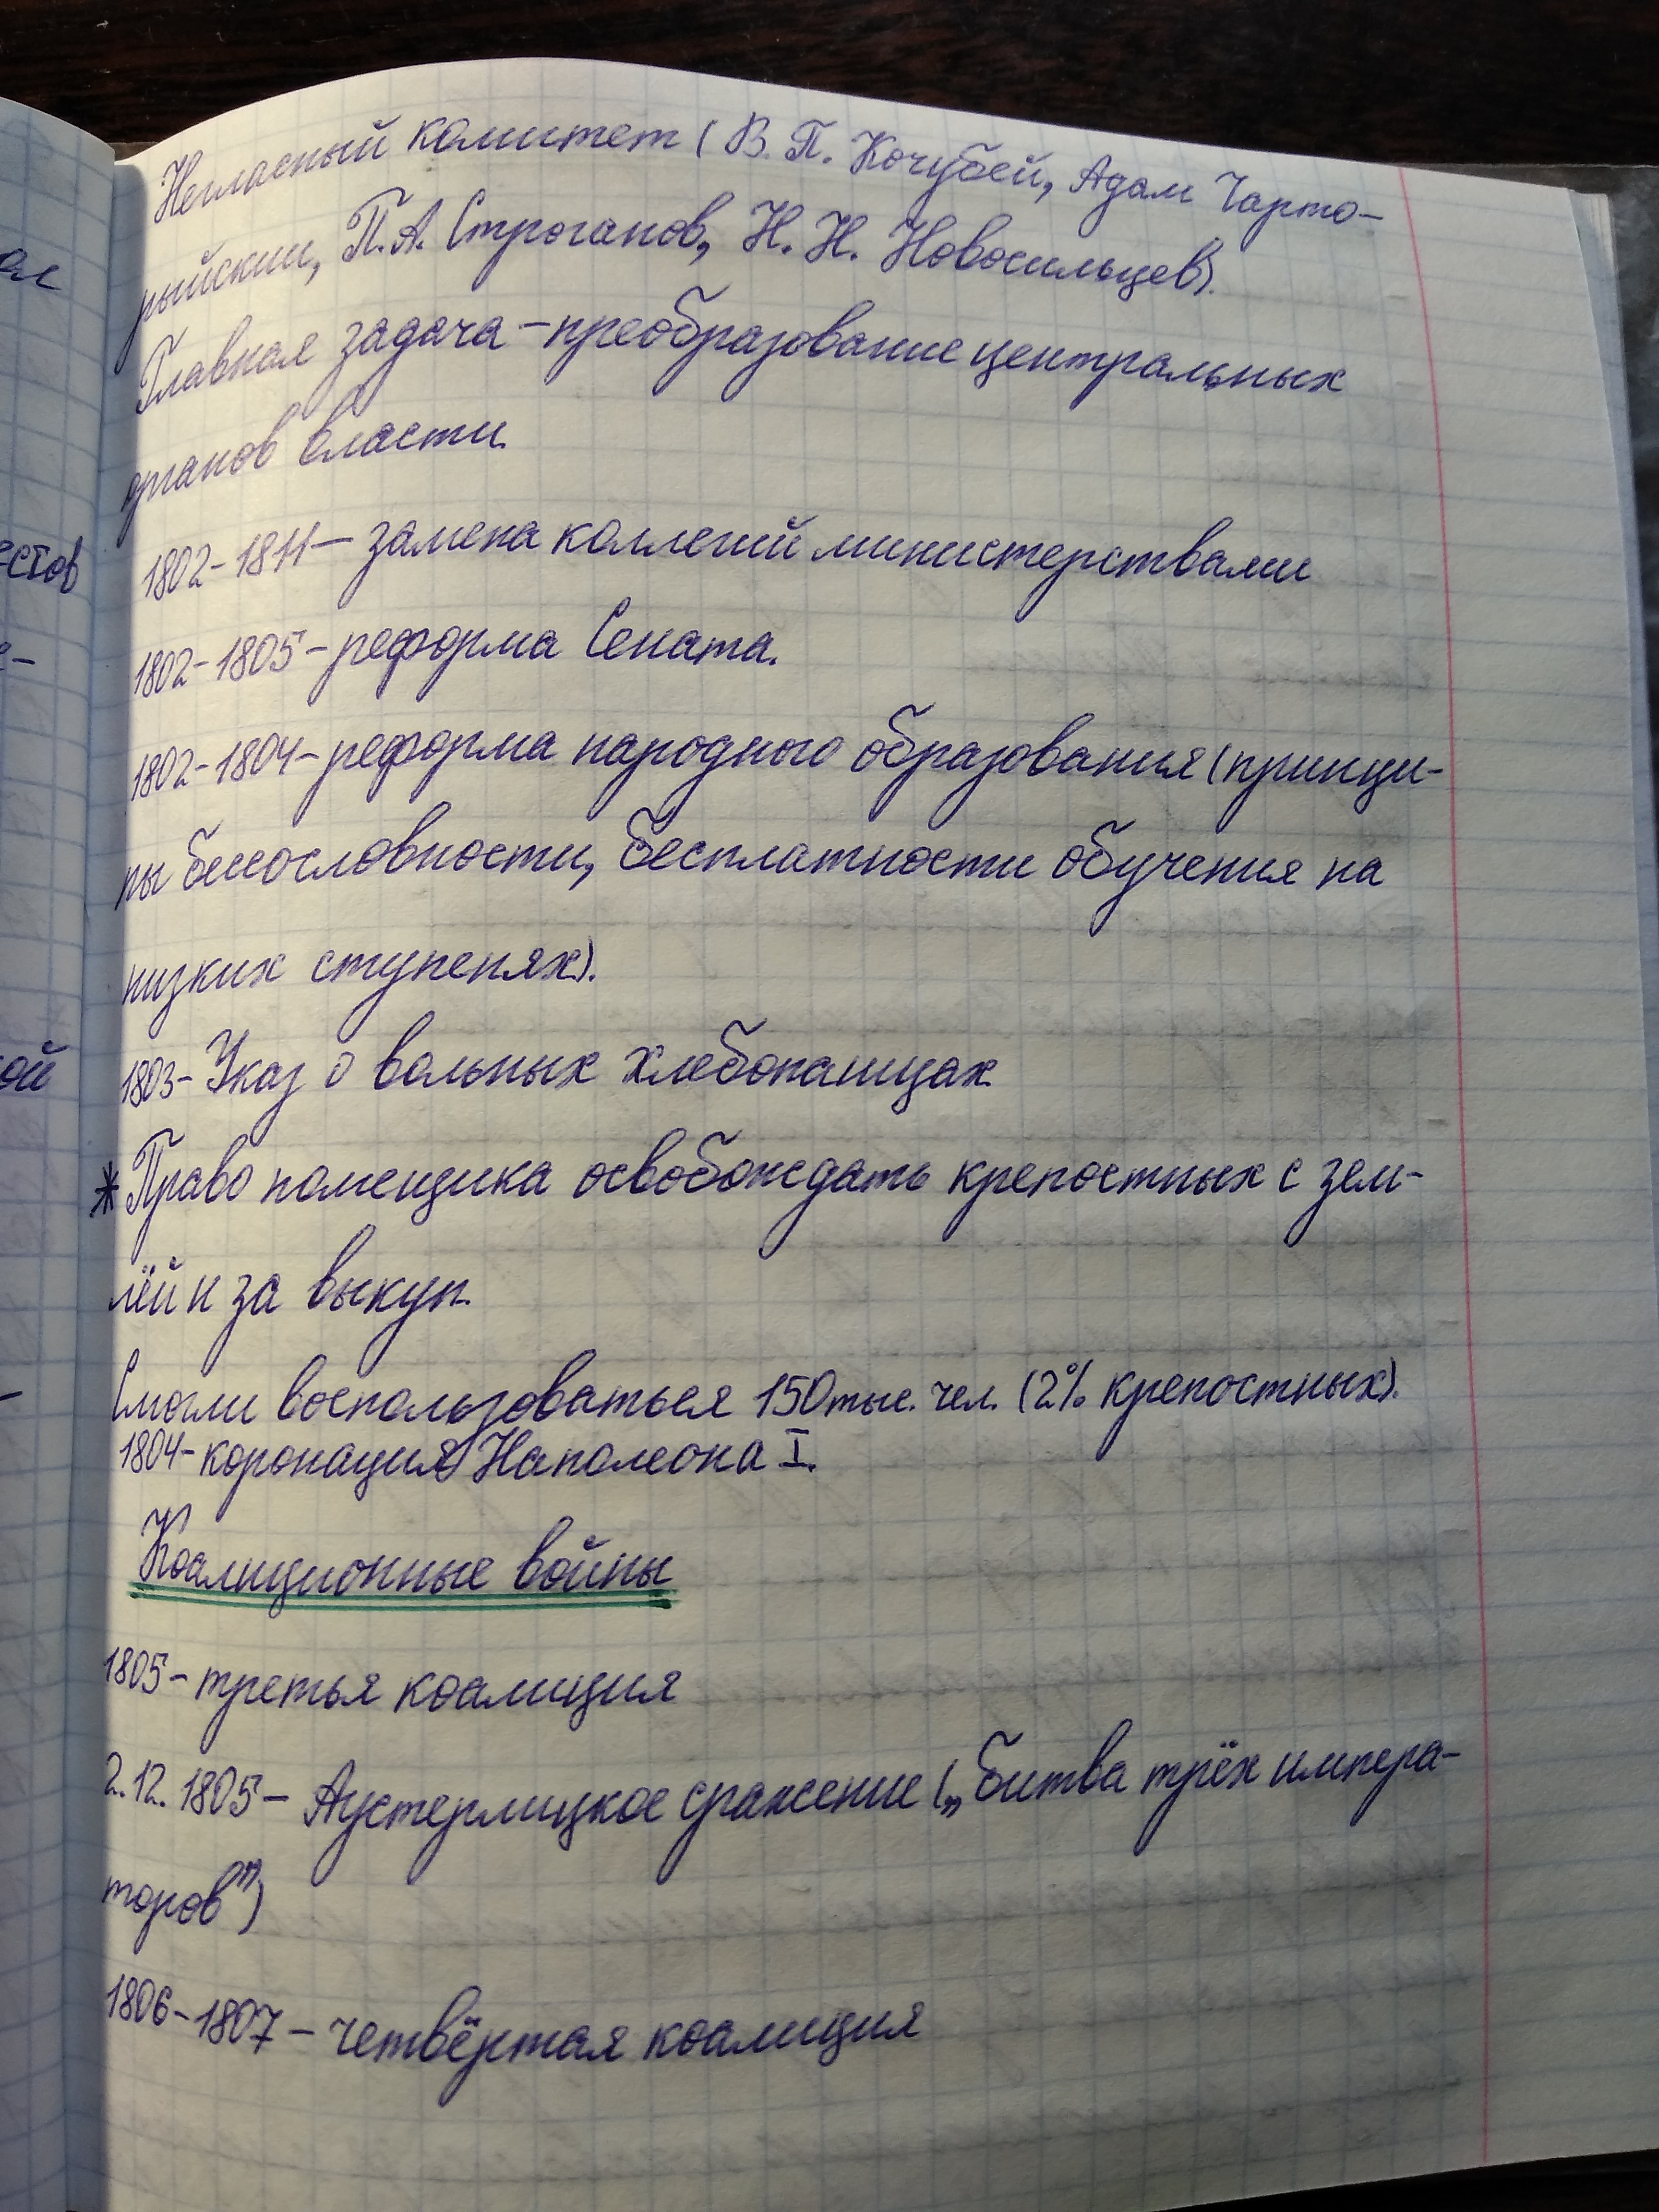 Негласный комитет (В. П. Кочубей, Адам Чарто-
рыйский, П. А. Строганов, Н. Н. Новосильцев).
Главная задача – преобразование центральных
органов власти.
1802-1811 – замена коллегий министерствами
1802-1805 – реформа Сената.
1802-1804 – реформа народного образования (принци-
пы бессословности, бесплатности обучения на
низких ступенях).
1803 – Указ о вольных хлебопашцах
* Право помещика освобождать крепостных с зем-
лёй и за выкуп.
Смогли воспользоваться 150 тыс. чел. (2% крепостных).
1804 – коронация Наполеона I.
Коалиционные войны
1805 – третья коалиция
2.12.1805 – Аустерлицкое сражение („битва трёх импера-
торов")
1806-1807 – четвёртая коалиция
естов
ой